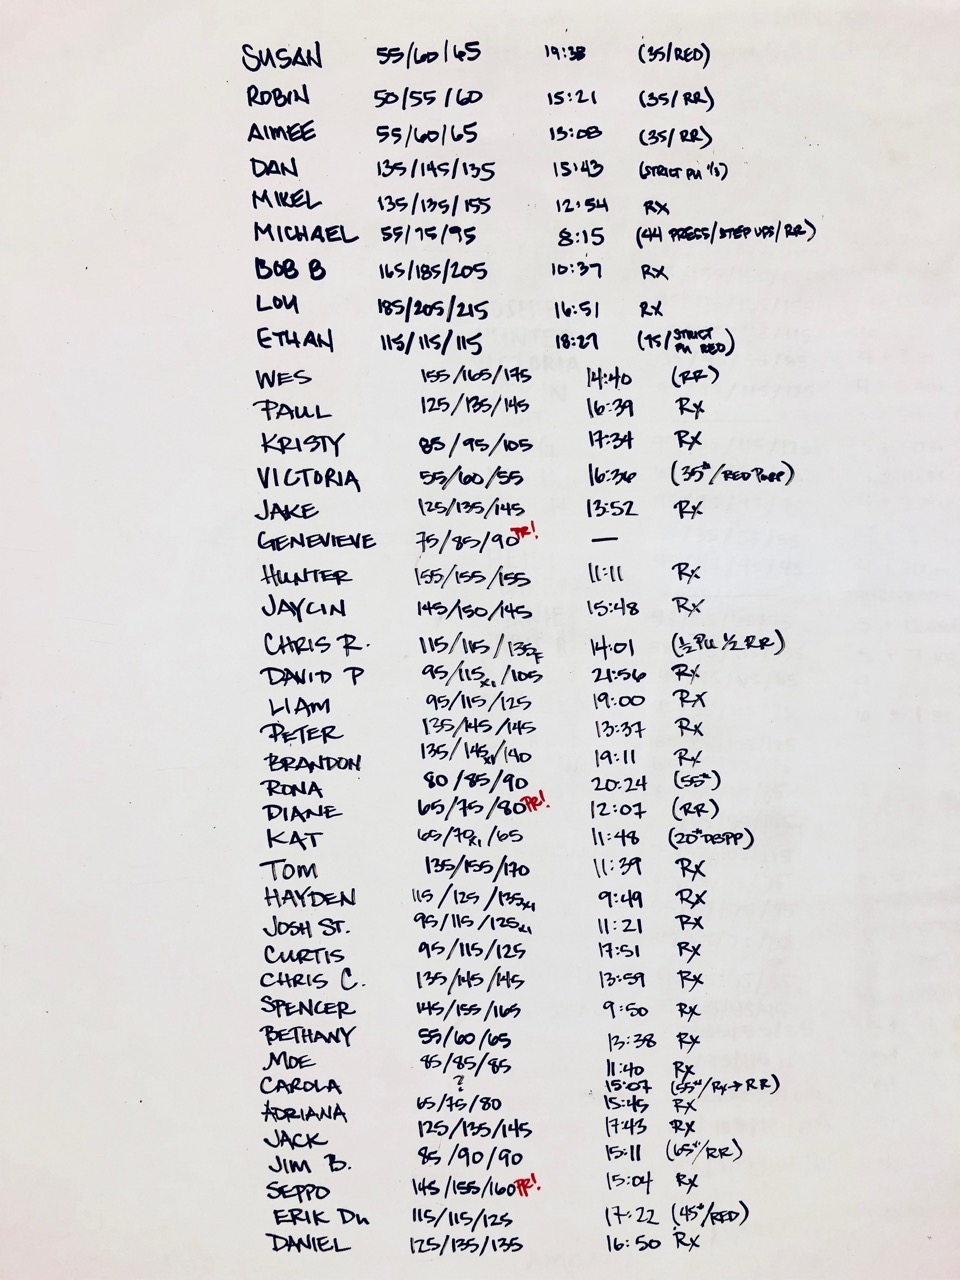 SUSAN 55/60/65 19:38 (35/RED)
ROBIN 50/55/60 15:21 (35/RR)
AIMEE 55/60/65 13:08 (35/RR)
DAN 135/145/135 15:43 (STRICT PU 1/3)
MIKEL 135/135/155 12:54 RX
MICHAEL 55/75/95 8:15 (44 PRESS/STEP UPS/RR)
BOB B 165/185/205 10:37 RX
LOU 185/205/215 16:51 RX
ETHAN 115/115/115 18:27 (75/STRICT PU RED)
WES 155/165/175 14:40 (RR)
PAUL 125/135/145 16:39 RX
KRISTY 85/95/105 17:34 RX
VICTORIA 55/60/55 16:36 (35#/RED)
JAKE 125/135/145 13:52 RX
GENEVIEVE 75/85/90 PR! —
HUNTER 155/155/155 11:11 RX
JAYCIN 145/150/145 15:48 RX
CHRIS R. 115/115/135F 14:01 (½ PU ½ RR)
DAVID P 95/115x1/105 21:56 RX
LIAM 95/115/125 19:00 RX
PETER 135/145/145 13:37 RX
BRANDON 135/145x1/140 19:11 RX
RONA 80/85/90 20:24 (55#)
DIANE 65/75/80 PR! 12:07 (RR)
KAT 65/70x1/65 11:48 (20# DBPP)
TOM 135/155/170 11:39 RX
HAYDEN 115/125/135x1 9:49 RX
JOSH ST. 95/115/125x1 11:21 RX
CURTIS 95/115/125 17:51 RX
CHRIS C. 135/145/145 13:59 RX
SPENCER 145/155/165 9:50 RX
BETHANY 55/60/65 13:38 RX
MOE 85/85/85 11:40 RX
CAROLA ? 15:07 (55#/RX→RR)
ADRIANA 65/75/80 15:45 RX
JACK 125/135/145 17:43 RX
JIM B. 85/90/90 15:11 (65#/RR)
SEPPO 145/155/160 PR! 15:04 RX
ERIK DU 115/115/125 17:22 (45#/RED)
DANIEL 125/135/135 16:50 RX